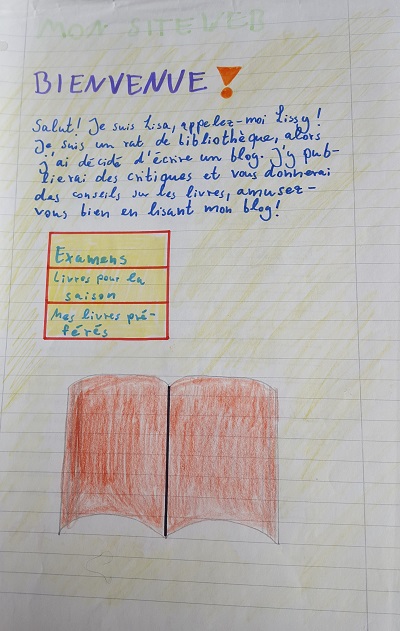 MON SITE WEB
BIENVENUE!
Salut! Je suis Lisa, appelez-moi Lissy!
Je suis un rat de bibliothèque, alors
j'ai décidé d'écrire un blog. J'y pub-
lierai des critiques et vous donnerai
des conseils sur les livres, amusez-
vous bien en lisant mon blog!
Examens
Livres pour la
saison
Mes livres pré-
férés